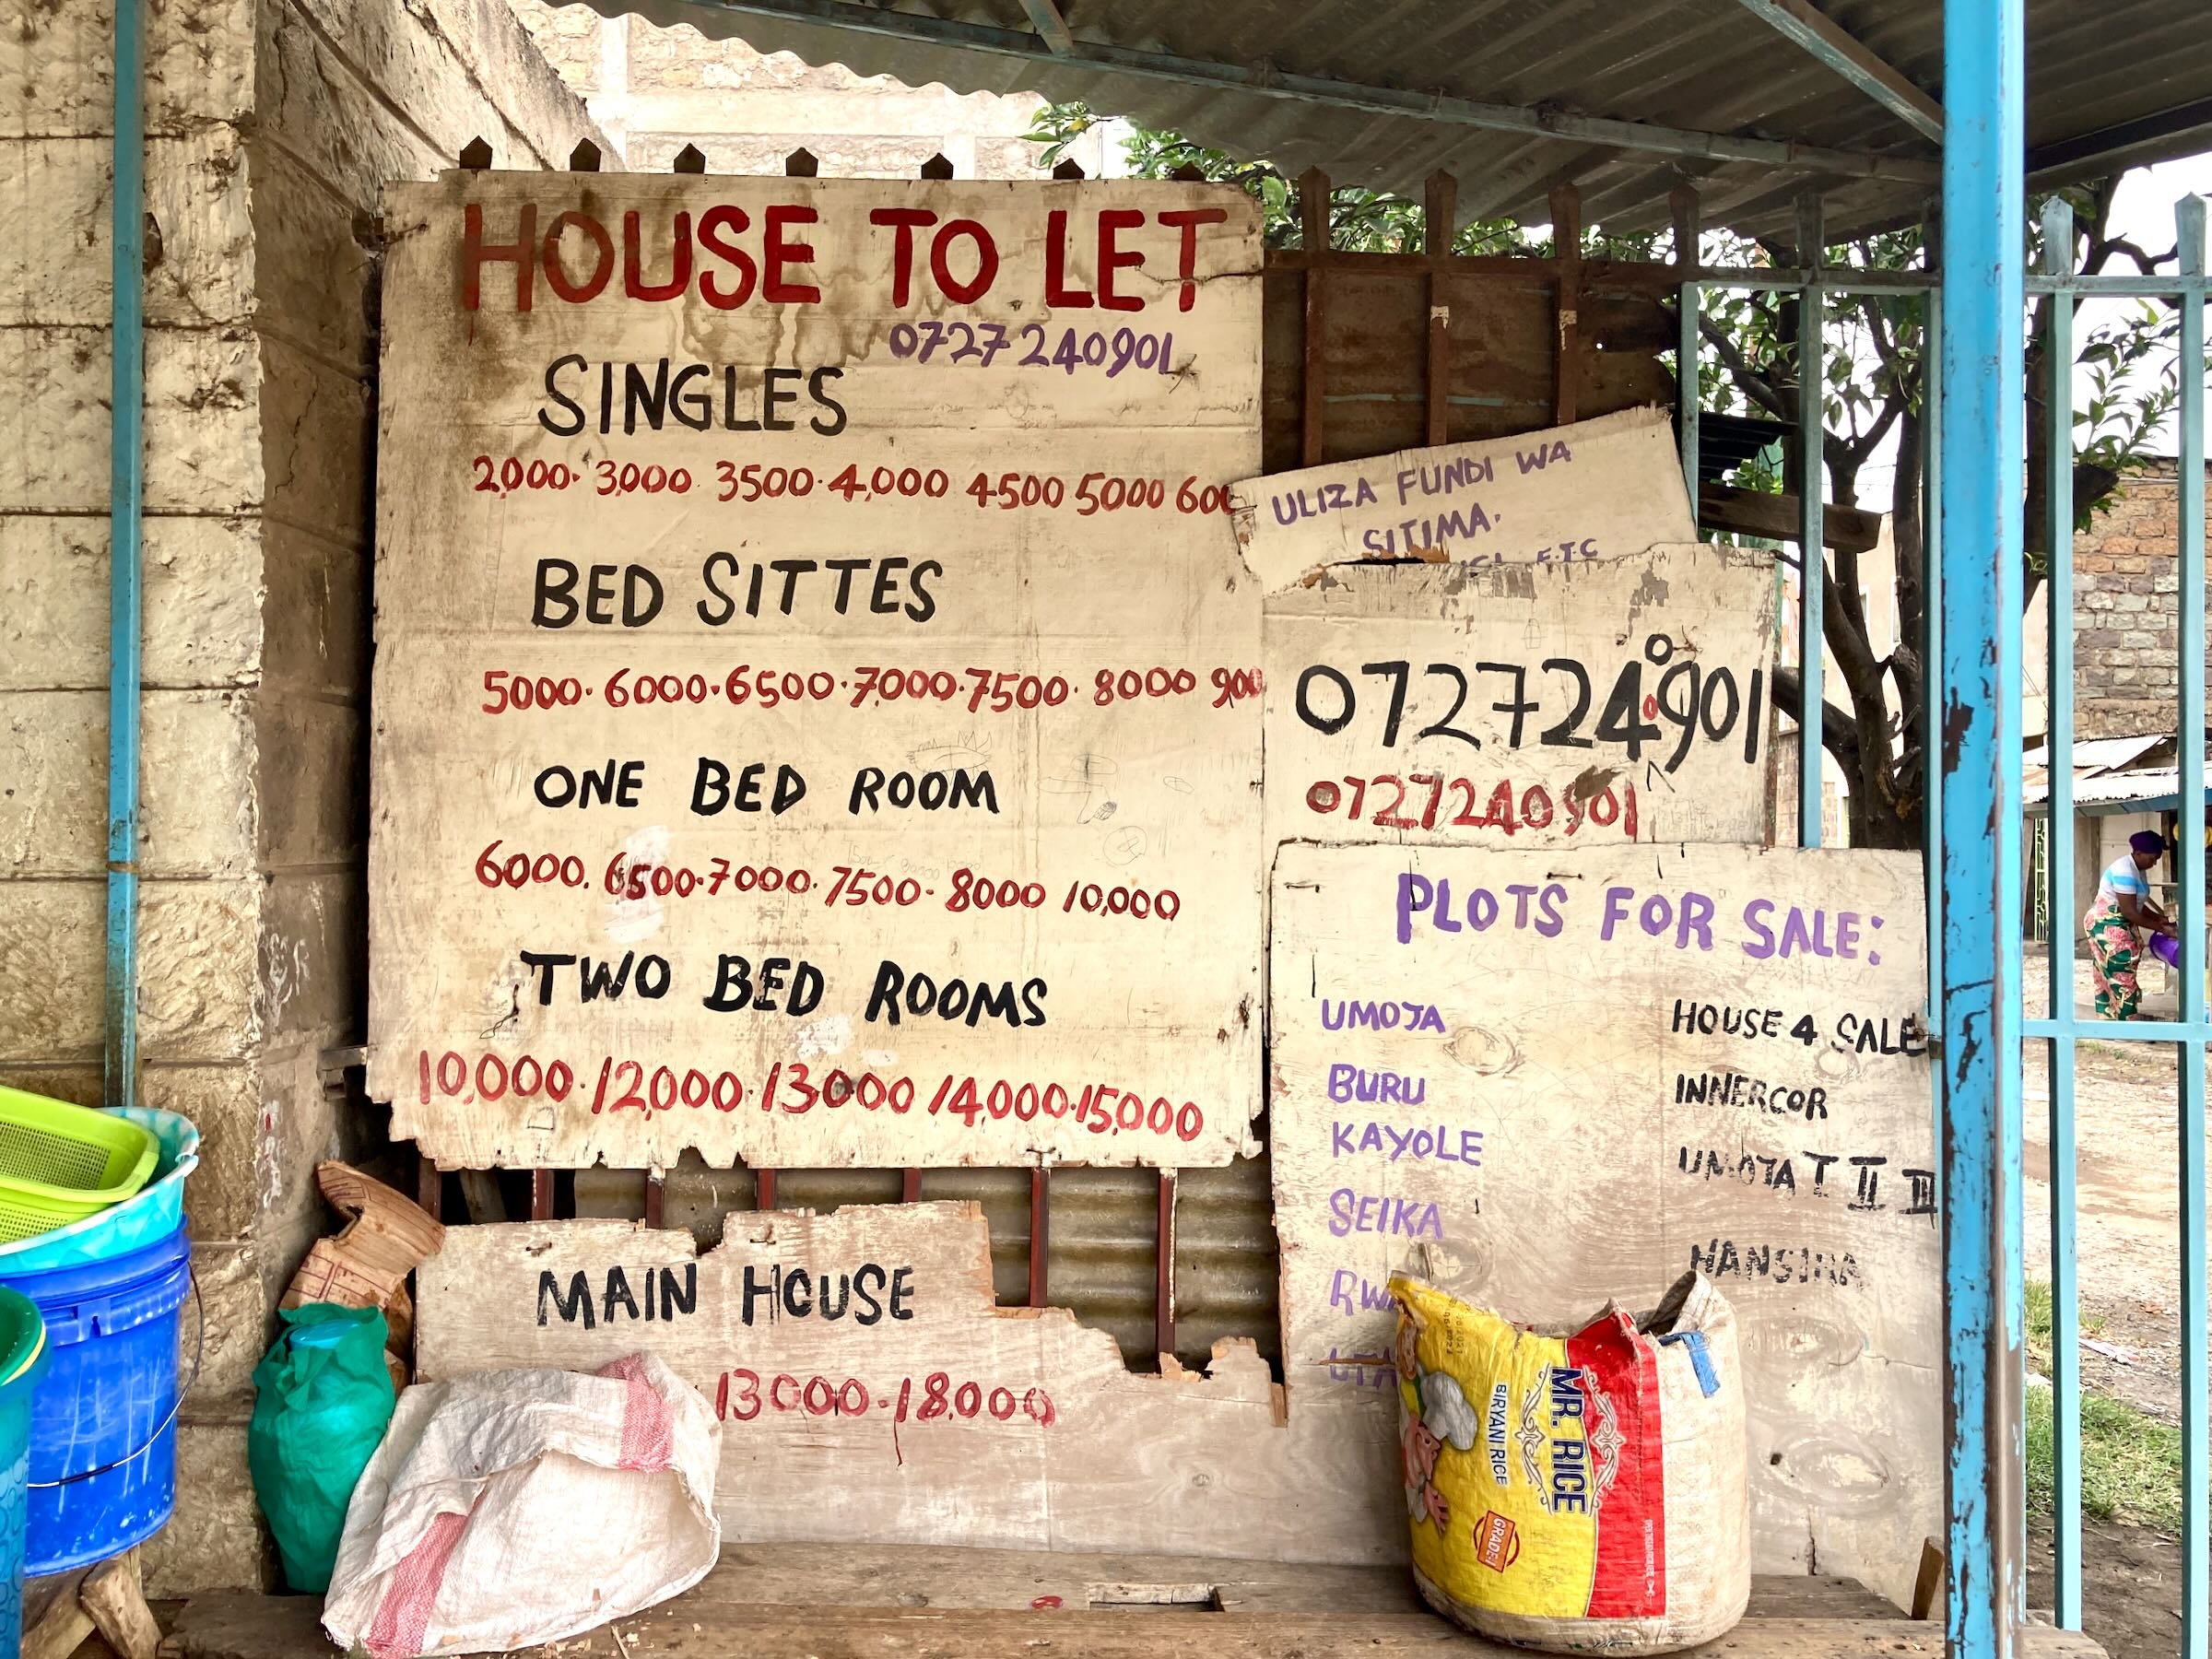 HOUSE TO LET
0727 240901
SINGLES
2,000. 3,000 3500. 4,000 4500 5000 600
BED SITTES
5000. 6000. 6500. 7,000. 7500. 8000 900
ONE BED ROOM
6000. 6500. 7000. 7500. 8000 10,000
TWO BED ROOMS
10,000. 12,000. 13000 14,000. 15,000
MAIN HOUSE
13000-18,000
ULIZA FUNDI WA
SITIMA.
ETC
0727240901
0727240901
PLOTS FOR SALE:
UMOJA
BURU
KAYOLE
SEIKA
HOUSE 4 SALE
INNERCOR
UMOJA I II III
MR. RICE
BIRYANI RICE
GRADE 1